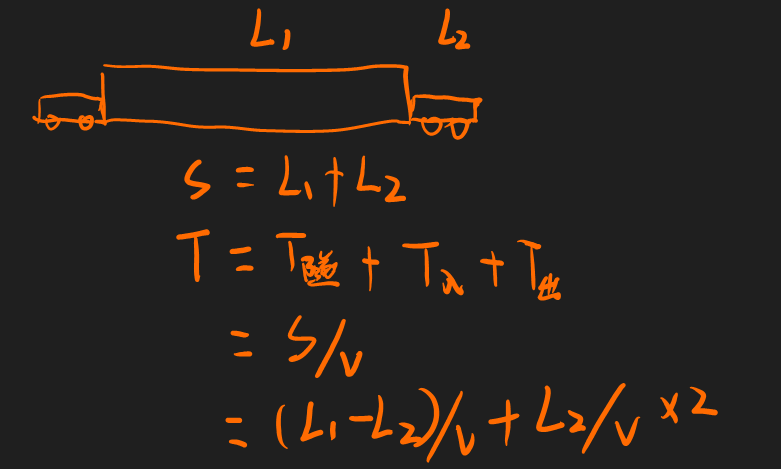 L₁ L₂
S = L₁+L₂
T = T隧 + T入 + T出
= S/v
= (L₁-L₂)/v + L₂/v ×2